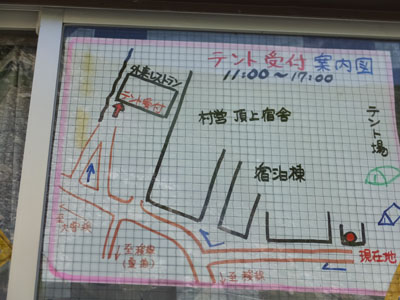 テント受付 案内図
11:00～17:00
外来レストラン
テント受付
村営 頂上宿舎
テント場
宿泊棟
現在地
至
至
至